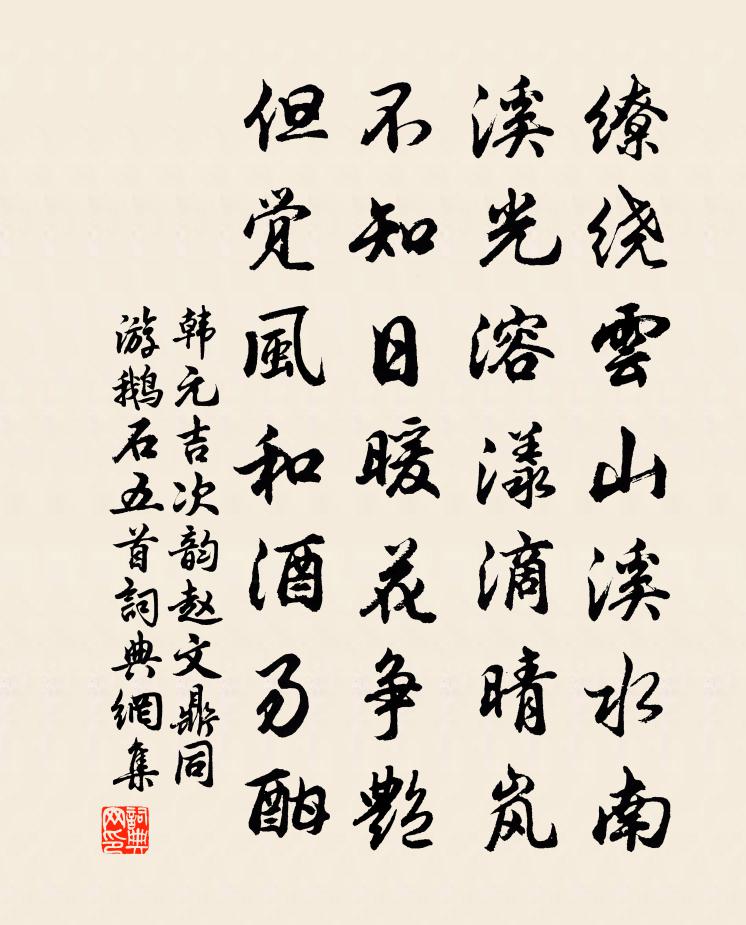 缭绕雲山溪水南
溪光溶漾滴晴岚
不知日暖花争艷
但觉風和酒易酣
韩元吉次韵赵文鼎同
游鹅石五首詞典網集
詞典网印